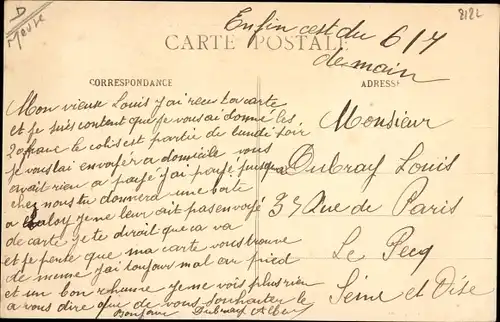 D
Meuse
8182
Enfin cest du 6/7
demain
CARTE POSTALE
CORRESPONDANCE
ADRESSE
Mon vieux Louis j'ai recu ta carte
et je suis content que je vous ai donné les
20 franc le colis est partie du lundi soir
je vous lai envoyer a domicile vous
avait rien a payé j'ai payé jusqua
chez nous tu donnera une boite
a je ne leur ait pas envoyé
de carte je te dirait que ca va
et je pente que ma carte vous trouve
de meme j'ai toujour mal au pied
et un bon rheume je ne vois plus rien
a vous dire que de vous souhaiter le
Bonjour Dubray Albert
Monsieur
Dubray Louis
35 Rue de Paris
Le Pecq
Seine et Oise